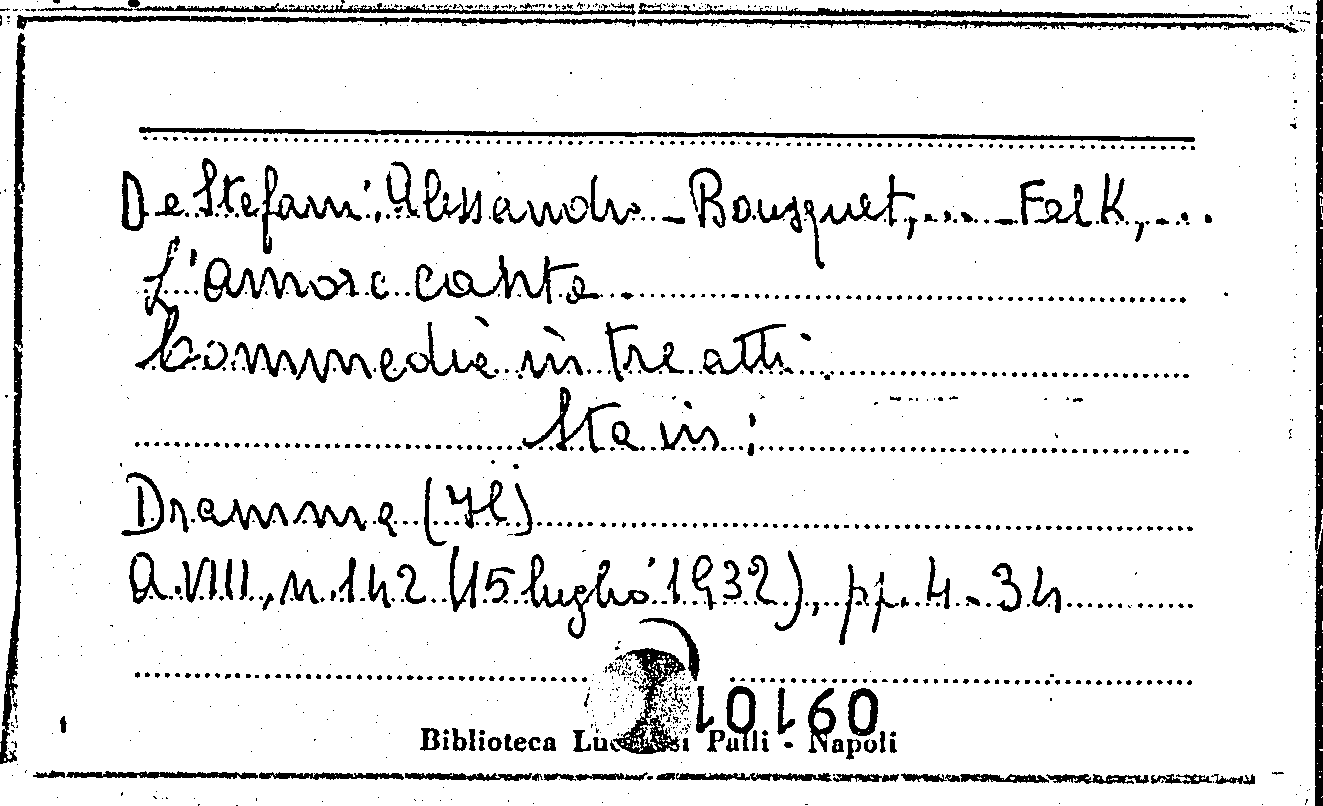 De Stefani, Alessandro - Bousquet, ... - Falk, ...
L'amore canta.
Commedia in tre atti.
Sta in:
Dramma (Il)
A. VIII, n. 142 (15 luglio 1932), pp. 4-34
10160
Biblioteca Lucchesi Palli - Napoli